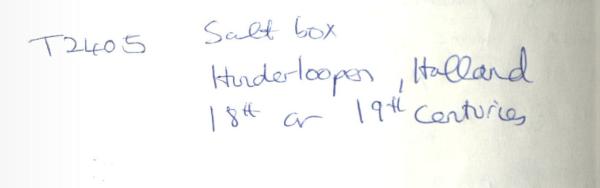 T2405 Salt box
Hinderloopen, Holland
18th or 19th Centuries